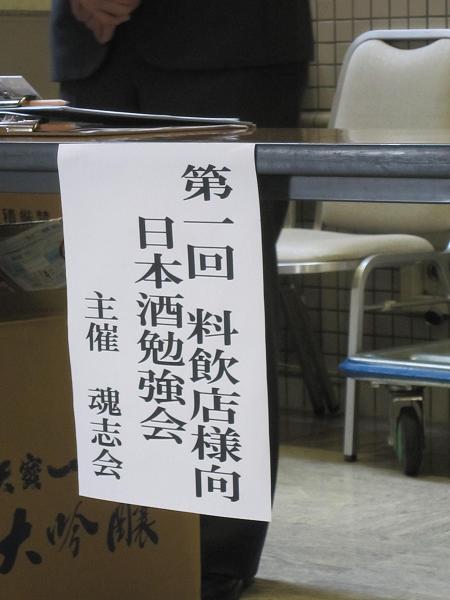 第一回 料飲店様向
日本酒勉強会
主催 魂志会
大吟醸